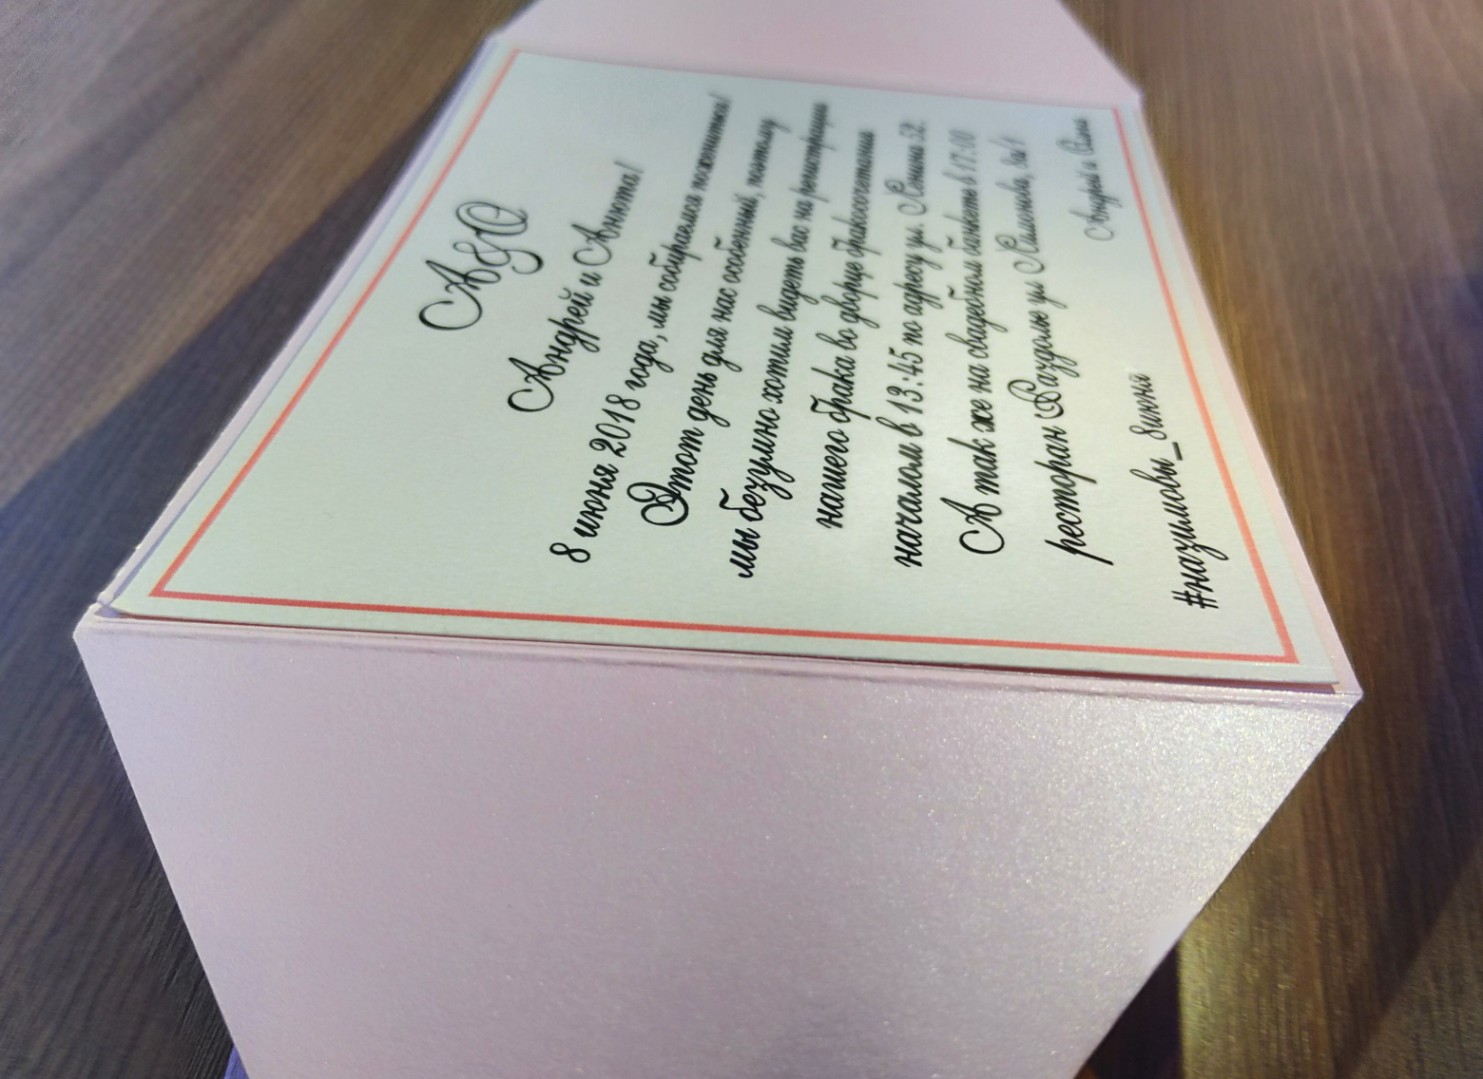 А&О
Андрей и Анюта!
8 июня 2018 года, мы собираемся пожениться!
Этот день для нас особенный, поэтому
мы безумно хотим видеть вас на регистрации
нашего брака во дворце бракосочетания
началом в 13:45 по адресу ул. Ленина 52.
А так же на свадебном банкете в 17:00
ресторан Раздолье ул
Андрей и
#назимовы_8июня